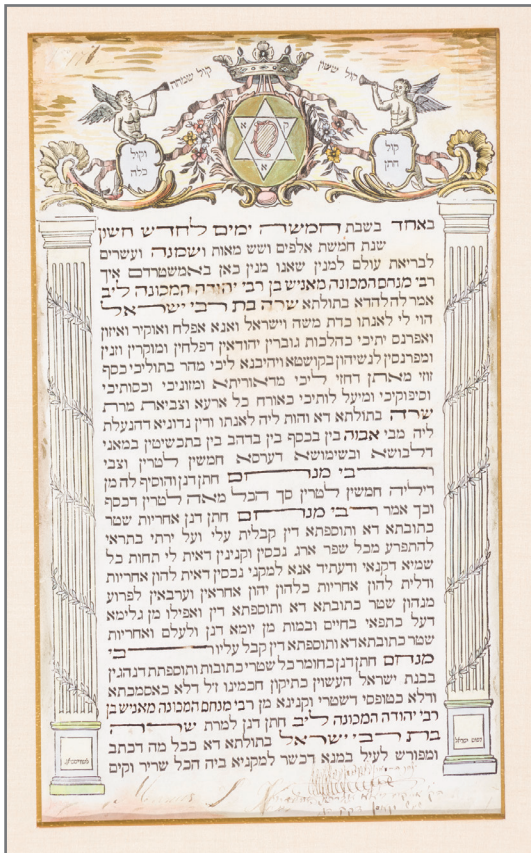 קול שמחה
קול ששון
וקול
כלה
ק
א
א
א
קול
חתן
באחד בשבת חמשה ימים לחדש חשון
שנת חמשת אלפים ושש מאות ושמנה ועשרים
לבריאת עולם למנין שאנו מנין כאן באמשטרדם איך
רבי מנחם המכונה מאניש בן רבי יהודה המכונה ליב
אמר לה להדא בתולתא שרה בת רבי ישראל
הוי לי לאנתו כדת משה וישראל ואנא אפלח ואוקיר ואיזון
ואפרנס יתיכי כהלכות גוברין יהודאין דפלחין ומוקרין וזנין
ומפרנסין לנשיהון בקושטא ויהיבנא ליכי מהר בתוליכי כסף
זוזי מאתן דחזי ליכי מדאוריתא ומזוניכי וכסותיכי
וסיפוקיכי ומיעל לותיכי כאורח כל ארעא וצביאת מרת
שרה בתולתא דא והות ליה לאנתו ודין נדוניא דהנעלת
ליה מבי אבוה בין בכסף בין בדהב בין בתכשיטין במאני
דלבושא ובשימושא דערסא חמשין לטרין וצבי
רבי מנחם חתן דנן והוסיף לה מן
דיליה חמשין לטרין סך הכל מאה לטרין דכסף
וכך אמר רבי מנחם חתן דנן אחריות שטר
כתובתא דא ותוספתא דין קבלית עלי ועל ירתי בתראי
להתפרע מכל שפר ארג נכסין וקנינין דאית לי תחות כל
שמיא דקנאי ודעתיד אנא למקני נכסין דאית להון אחריות
ודלית להון אחריות כלהון יהון אחראין וערבאין לפרוע
מנהון שטר כתובתא דא ותוספתא דין ואפילו מן גלימא
דעל כתפאי בחיים ובמות מן יומא דנן ולעלם ואחריות
שטר כתובתא דא ותוספתא דין קבל עליו רבי
מנחם חתן דנן כחומר כל שטרי כתובות ותוספתת דנהגין
בבנת ישראל העשוין כתיקון חכמינו ז״ל דלא כאסמכתא
ודלא כטופסי דשטרי וקנינא מן רבי מנחם המכונה מאניש בן
רבי יהודה המכונה ליב חתן דנן למרת שרה
בת רבי ישראל בתולתא דא בכל מה דכתב
ומפורש לעיל במנא דכשר למקניא ביה הכל שריר וקים